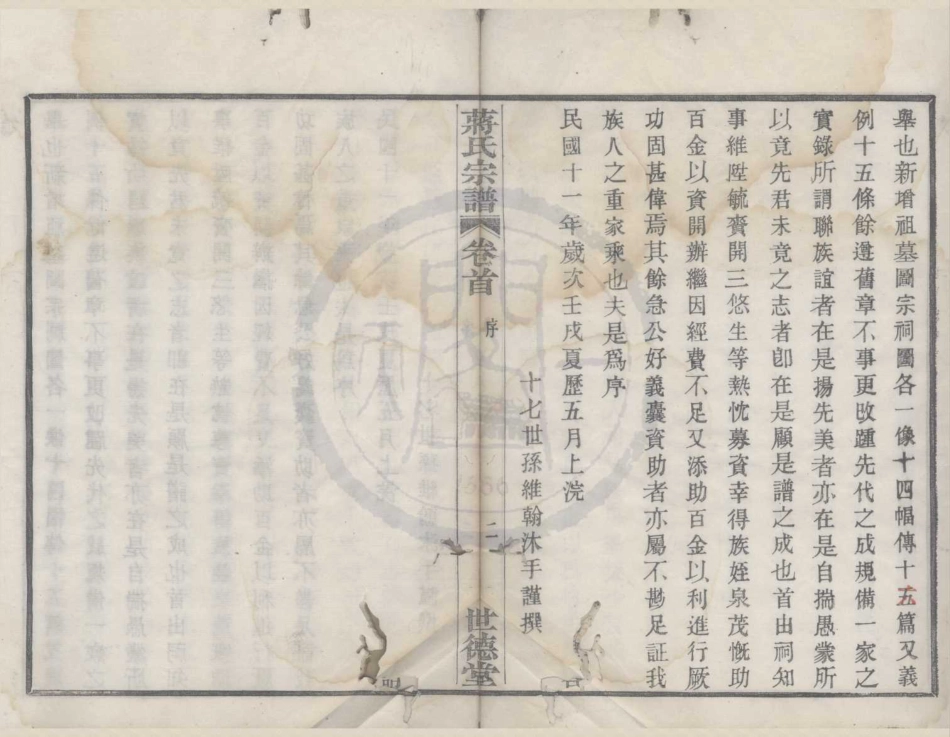 舉也新增祖墓圖宗祠圖各一像十四幅傳十五篇又義
例十五條餘遵舊章不事更改踵先代之成規備一家之
實錄所謂聯族誼者在是揚先美者亦在是自揣愚蒙所
以竟先君未竟之志者卽在是顧是譜之成也首由祠知
事維陞毓賚開三悠生等熱忱募資幸得族姪泉茂慨助
百金以資開辦繼因經費不足又添助百金以利進行厥
功固甚偉焉其餘急公好義囊資助者亦屬不尠足証我
族人之重家乘也夫是爲序
民國十一年歲次壬戌夏歷五月上浣
十七世孫維翰沐手謹撰
蔣氏宗譜 卷首 序 二 世德堂